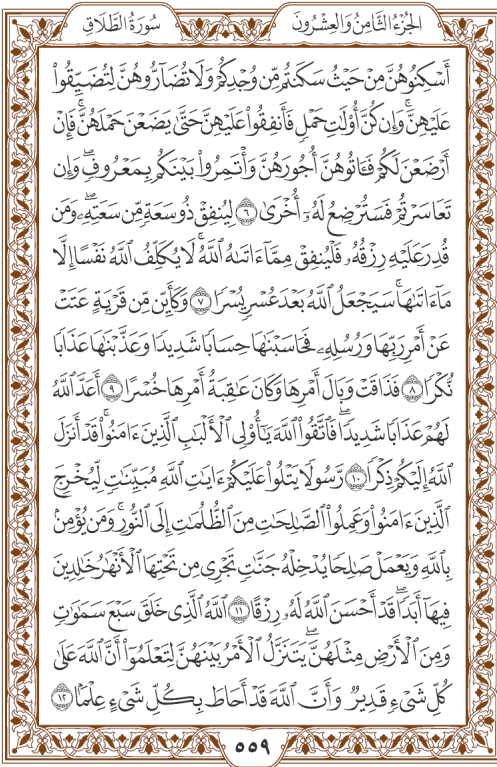 الجُزْءُ الثَّامِنُ وَالعِشْرُونَ سُورَةُ الطَّلَاقِ
أَسْكِنُوهُنَّ مِنْ حَيْثُ سَكَنتُم مِّن وُجْدِكُمْ وَلَا تُضَآرُّوهُنَّ لِتُضَيِّقُوا۟
عَلَيْهِنَّ ۚ وَإِن كُنَّ أُو۟لَٰتِ حَمْلٍ فَأَنفِقُوا۟ عَلَيْهِنَّ حَتَّىٰ يَضَعْنَ حَمْلَهُنَّ ۚ فَإِنْ
أَرْضَعْنَ لَكُمْ فَـَٔاتُوهُنَّ أُجُورَهُنَّ ۖ وَأْتَمِرُوا۟ بَيْنَكُم بِمَعْرُوفٍ ۖ وَإِن
تَعَاسَرْتُمْ فَسَتُرْضِعُ لَهُۥٓ أُخْرَىٰ ٦ لِيُنفِقْ ذُو سَعَةٍ مِّن سَعَتِهِۦ ۖ وَمَن
قُدِرَ عَلَيْهِ رِزْقُهُۥ فَلْيُنفِقْ مِمَّآ ءَاتَىٰهُ ٱللَّهُ ۚ لَا يُكَلِّفُ ٱللَّهُ نَفْسًا إِلَّا
مَآ ءَاتَىٰهَا ۚ سَيَجْعَلُ ٱللَّهُ بَعْدَ عُسْرٍ يُسْرًا ٧ وَكَأَيِّن مِّن قَرْيَةٍ عَتَتْ
عَنْ أَمْرِ رَبِّهَا وَرُسُلِهِۦ فَحَاسَبْنَٰهَا حِسَابًا شَدِيدًا وَعَذَّبْنَٰهَا عَذَابًا
نُّكْرًا ٨ فَذَاقَتْ وَبَالَ أَمْرِهَا وَكَانَ عَٰقِبَةُ أَمْرِهَا خُسْرًا ٩ أَعَدَّ ٱللَّهُ
لَهُمْ عَذَابًا شَدِيدًا ۖ فَٱتَّقُوا۟ ٱللَّهَ يَٰٓأُو۟لِى ٱلْأَلْبَٰبِ ٱلَّذِينَ ءَامَنُوا۟ ۚ قَدْ أَنزَلَ
ٱللَّهُ إِلَيْكُمْ ذِكْرًا ١٠ رَّسُولًا يَتْلُوا۟ عَلَيْكُمْ ءَايَٰتِ ٱللَّهِ مُبَيِّنَٰتٍ لِّيُخْرِجَ
ٱلَّذِينَ ءَامَنُوا۟ وَعَمِلُوا۟ ٱلصَّٰلِحَٰتِ مِنَ ٱلظُّلُمَٰتِ إِلَى ٱلنُّورِ ۚ وَمَن يُؤْمِنۢ
بِٱللَّهِ وَيَعْمَلْ صَٰلِحًا يُدْخِلْهُ جَنَّٰتٍ تَجْرِى مِن تَحْتِهَا ٱلْأَنْهَٰرُ خَٰلِدِينَ
فِيهَآ أَبَدًا ۖ قَدْ أَحْسَنَ ٱللَّهُ لَهُۥ رِزْقًا ١١ ٱللَّهُ ٱلَّذِى خَلَقَ سَبْعَ سَمَٰوَٰتٍ
وَمِنَ ٱلْأَرْضِ مِثْلَهُنَّ ۖ يَتَنَزَّلُ ٱلْأَمْرُ بَيْنَهُنَّ لِتَعْلَمُوٓا۟ أَنَّ ٱللَّهَ عَلَىٰ
كُلِّ شَىْءٍ قَدِيرٌ وَأَنَّ ٱللَّهَ قَدْ أَحَاطَ بِكُلِّ شَىْءٍ عِلْمًۢا ١٢
٥٥٩